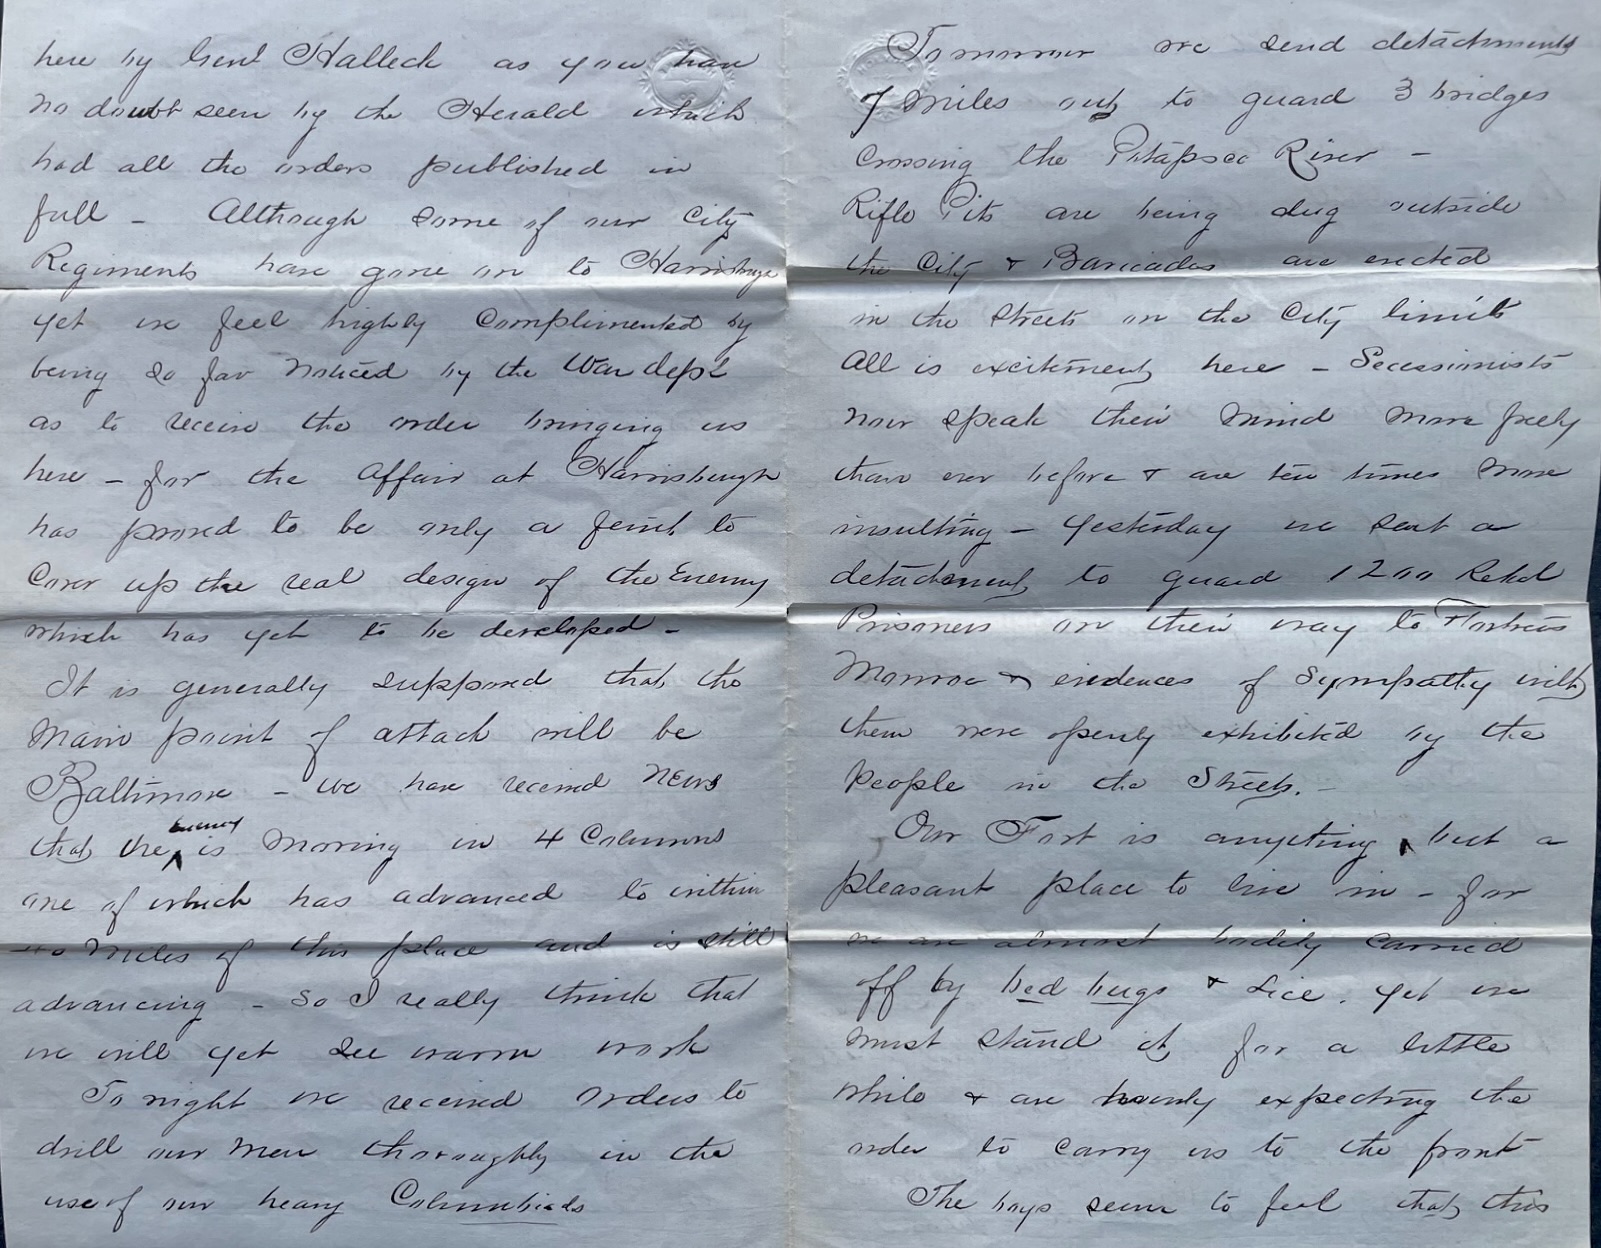 here by Genl Halleck as you have
no doubt seen by the Herald which
had all the orders published in
full – Although some of our City
Regiments have gone on to Harrisburgh
yet we feel highly complimented by
being so far noticed by the War dept
as to receive the order bringing us
here – for the affair at Harrisburgh
has proved to be only a feint to
Cover up the real design of the Enemy
which has yet to be developed –
It is generally supposed that the
main point of attack will be
Baltimore – we have received News
that the enemy is moving in 4 Columns
one of which has advanced to within
40 miles of this place and is still
advancing – so I really think that
we will yet see warm work
To night we received orders to
drill our men thoroughly in the
use of our heavy Columbiads
Tomorrow we send detachments
7 miles out to guard 3 bridges
crossing the Patapsco River –
Rifle Pits are being dug outside
the City & Baricades are erected
in the streets on the City limits
All is excitement here – Secessionists
now speak their mind more freely
than ever before & are ten times more
insulting – Yesterday we sent a
detachment to guard 1200 Rebel
Prisoners on their way to Fortress
Monroe & evidences of sympathy with
them were openly exhibited by the
people in the Streets. –
Our Fort is anything but a
pleasant place to live in – for
we are almost bodily carried
off by bed bugs & Lice. Yet we
must stand it for a little
while & are hourly expecting the
order to carry us to the front
The boys seem to feel that this